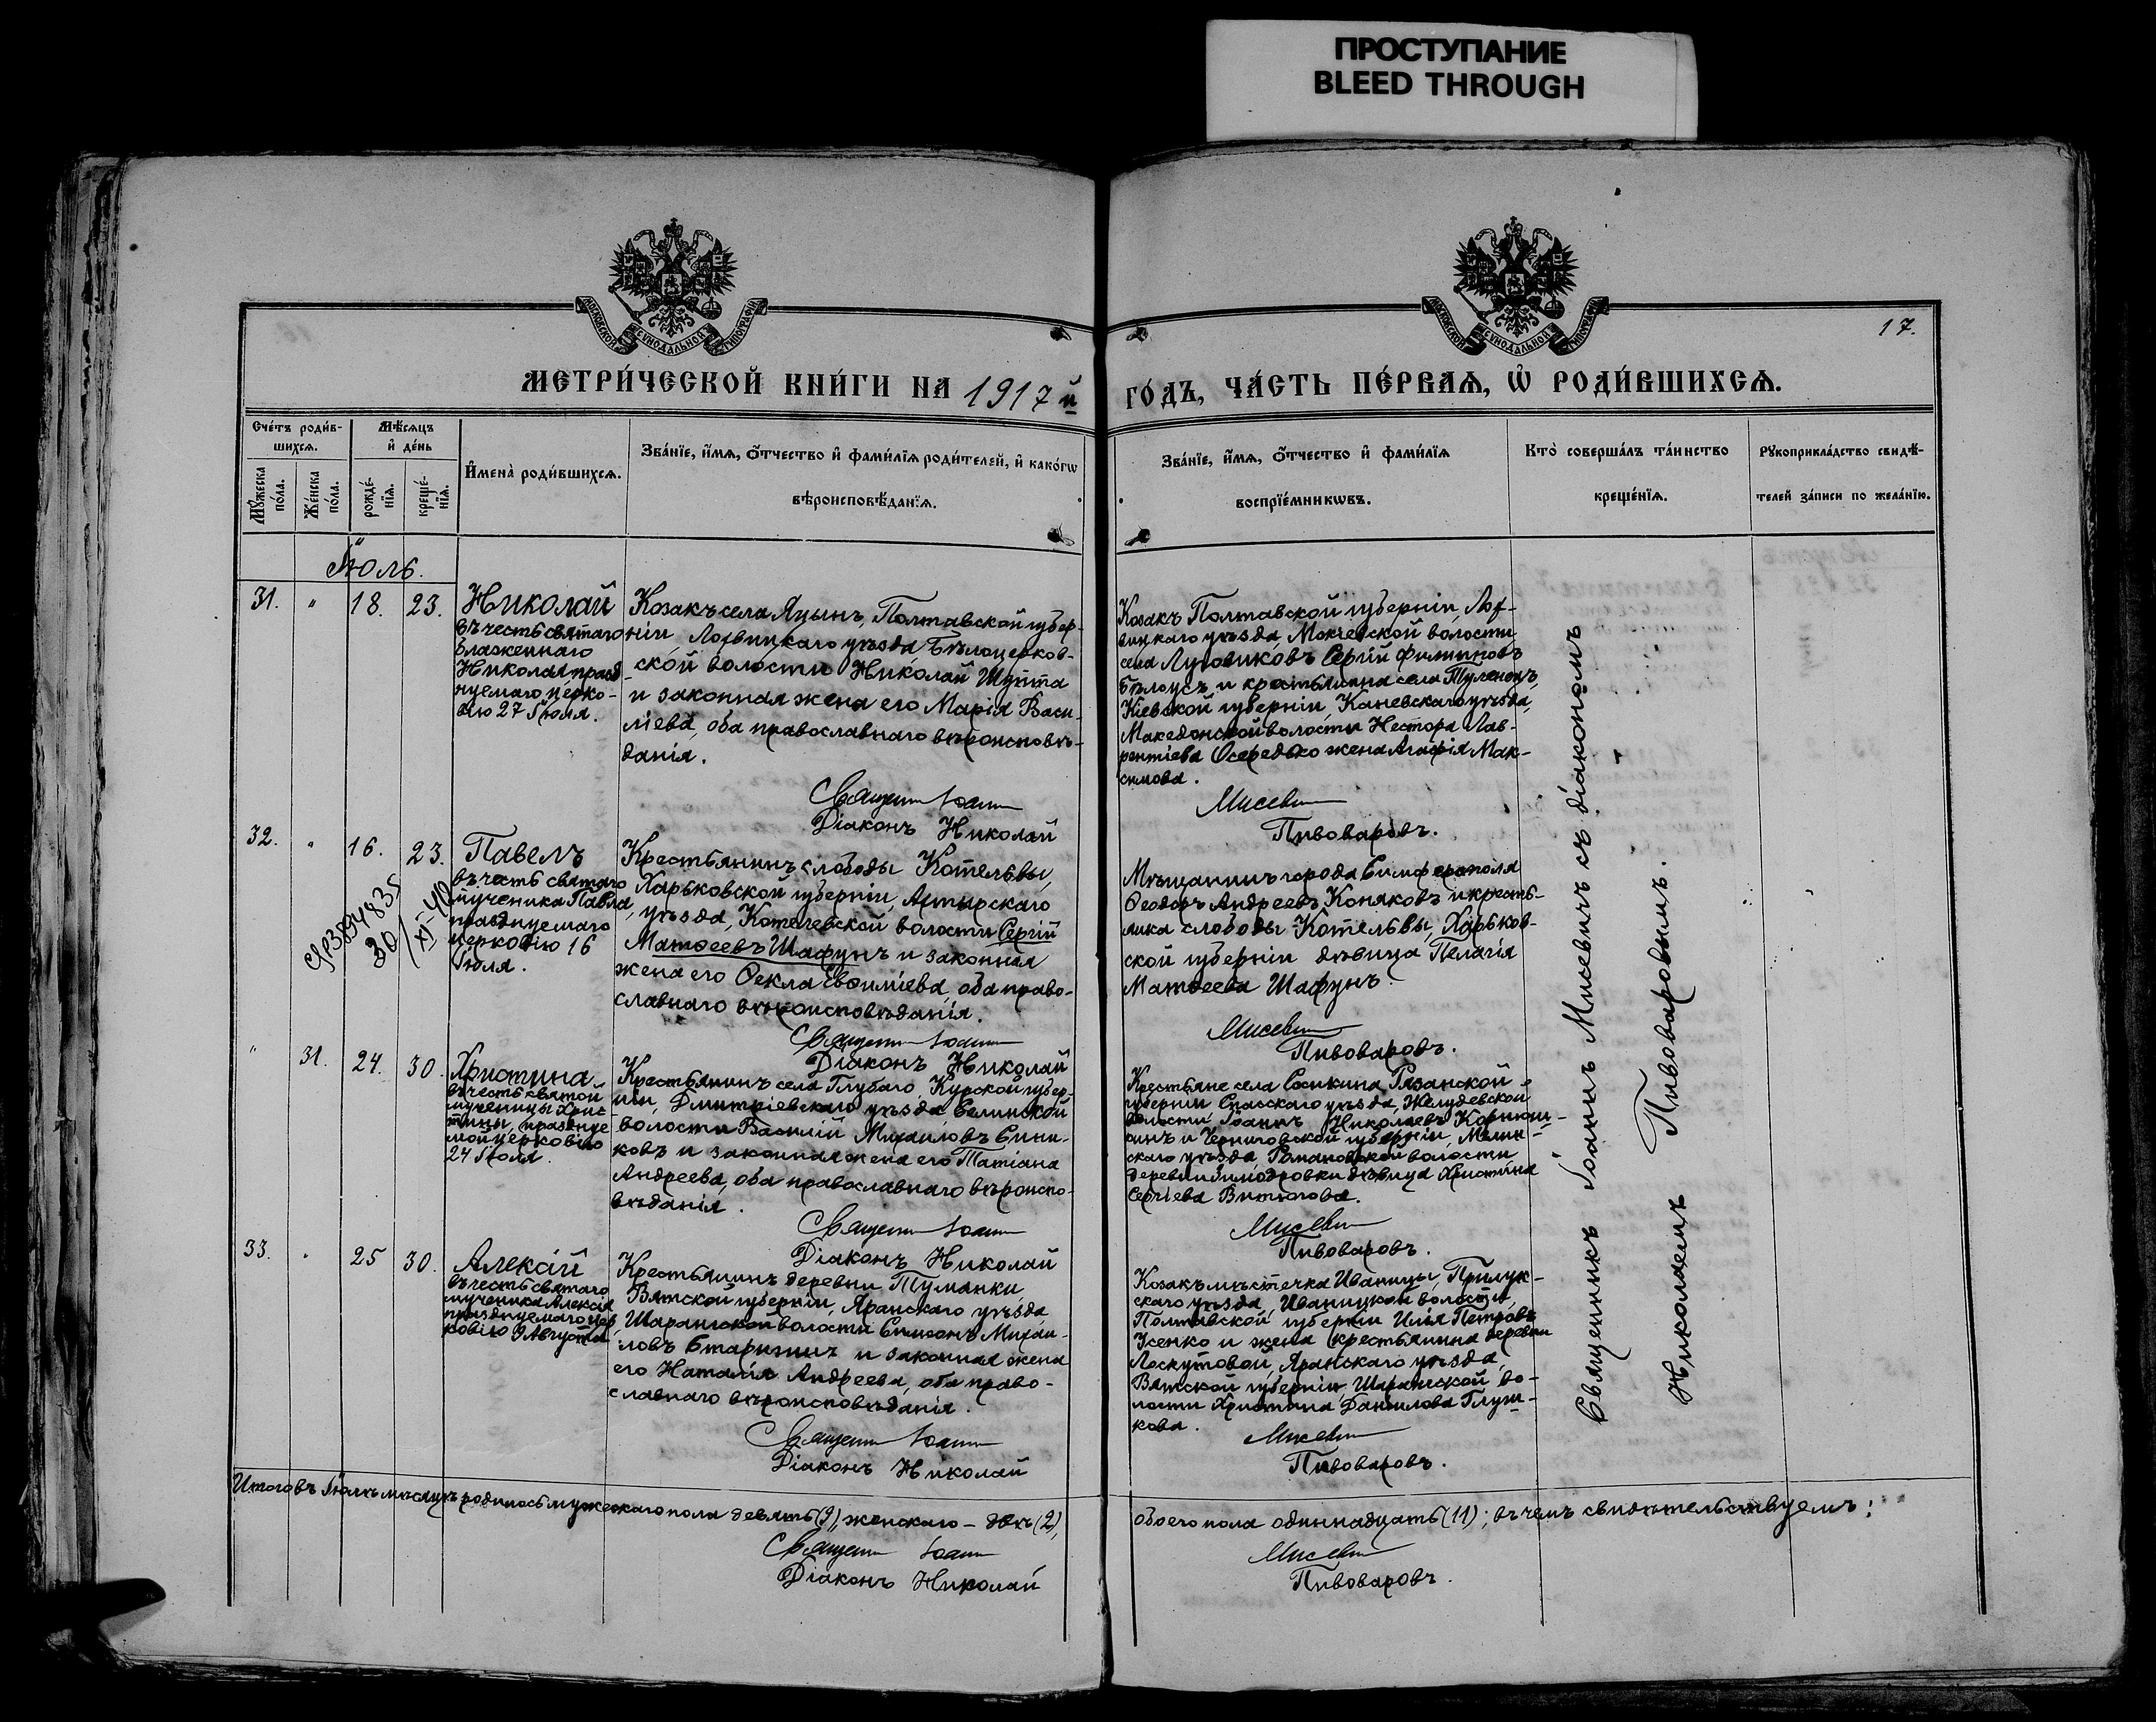 ПРОСТУПАНИЕ
BLEED THROUGH
МОСКОВСКОЙ СѴНОДАЛЬНОЙ ТИПОГРАФІИ
МОСКОВСКОЙ СѴНОДАЛЬНОЙ ТИПОГРАФІИ
17.
МЕТРИ́ЧЕСКОЙ КНИ́ГИ НА 1917 й
ГО́ДЪ, ЧА́СТЬ ПЕ́РВАѦ, Ѡ҆ РОДИ́ВШИХСѦ.
Сче́тъ роди́в-
шихсѧ.
Мѣ́сѧцъ
и҆ де́нь
Мꙋ́жеска
по́ла.
Же́нска
по́ла.
рожде́-
нїѧ.
креще́-
нїѧ.
И҆мена̀ роди́вшихсѧ.
Зва́нїе, и҆́мѧ, ѻ҆́тчество и҆ фами́лїѧ роди́телей, и҆ како́гѡ
вѣроисповѣ́данїѧ.
Зва́нїе, и҆́мѧ, ѻ҆́тчество и҆ фами́лїѧ
воспрїе́мникѡвъ.
Кто̀ соверша́лъ та́инство
креще́нїѧ.
Рꙋкоприкла́дство свидѣ́-
телей за́писи по жела́нїю.
Іюль.
31. " 18. 23.
Николай
въ честь святаго
блаженнаго
Николая празд
нуемаго церко-
вію 27 Іюля.
Козакъ села Яцынъ, Полтавской губер-
ніи Лохвицкаго уѣзда Бѣлоцерков-
ской волости Николай Шупта
и законная жена его Марія Васи-
ліева, оба православнаго вѣроисповѣ-
данія.
Священ Іоанн
Діаконъ Николай
Козакъ Полтавской губерніи, Лох-
вицкаго уѣзда села Луговиковъ Сергій Филипповъ
Бѣлоусъ и крестьянина села
Кіевской губерніи Каневскаго уѣзда,
Македонской волости Нестора Лав-
рентіева Осередько жена Агафія Мак-
симова.
Мисевич
Пивоваровъ.
32. " 16. 23.
Павелъ
въ честь святаго
мученика Павла,
празднуемаго
церковію 16
Іюля.
30/XI-40
Крестьянинъ слободы Котельвы,
Харьковской губерніи, Ахтырскаго
уѣзда, Котелевской волости Сергій
Матѳеевъ Шафунъ и законная
жена его Ѳекла Евѳиміева, оба право-
славнаго вѣроисповѣданія.
Священ Іоанн
Діаконъ Николай
Мѣщанинъ города Симферополя
Ѳеодоръ Андреевъ Коняковъ и кресть-
янка слободы Котельвы, Харьков-
ской губерніи дѣвица Пелагія
Матѳеева Шафунъ.
Мисевич
Пивоваровъ.
" 31. 24. 30.
Христина
въ честь святой
мученицы Хрис-
тины, празднуе
мой церковію
24 Іюля.
Крестьянинъ села Глубаго Курской губер-
ніи, Дмитріевскаго уѣзда Селинской
волости Василій Михаиловъ Сини-
ковъ и законная жена его Татіана
Андреева, оба православнаго вѣроиспо-
вѣданія.
Священ Іоанн
Діаконъ Николай
Крестьяне села Рязанской
губерніи Спасскаго уѣзда, Желудевской
волости Іоаннъ Николаевъ и Черниговской губерніи, Мглин-
скаго уѣзда, Романовской волости
деревни дѣвица Христина
Сергіева Витюгова.
Мисевич
Пивоваровъ.
33. " 25 30.
Алексій
въ честь святаго
мученика Алексія
празднуемаго цер
ковію 9 Августа
Крестьянинъ деревни Туманки,
Вятской губерніи, Яранскаго уѣзда,
Шарангской волости Михаи-
ловъ Старыгинъ и законная жена
его Наталія Андреева, оба право-
славнаго вѣроисповѣданія.
Священ Іоанн
Діаконъ Николай
Козакъ мѣстечка Иваницы, Прилук-
скаго уѣзда, Иваницкой волости,
Полтавской губерніи Илія Петровъ
Усенко и жена крестьянина деревни
Лоскутовой, Яранскаго уѣзда,
Вятской губерніи, Шарангской во-
лости Христина Данилова Глуш-
кова.
Мисевич
Пивоваровъ.
Священникъ Іоаннъ Мисевичъ съ діакономъ
Николаемъ Пивоваровымъ.
Итого въ Іюлѣ мѣсяцѣ родилось мужескаго пола девять (9), женскаго – двѣ (2),
обоего пола одиннадцать (11); въ чемъ свидѣтельствуемъ:
Священ Іоанн
Діаконъ Николай
Мисевич
Пивоваровъ.